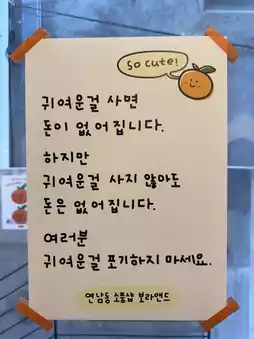 so cute!
귀여운걸 사면
돈이 없어집니다.
하지만
귀여운걸 사지 않아도
돈은 없어집니다.
여러분
귀여운걸 포기하지 마세요.
연남동 소품샵 보라앤드